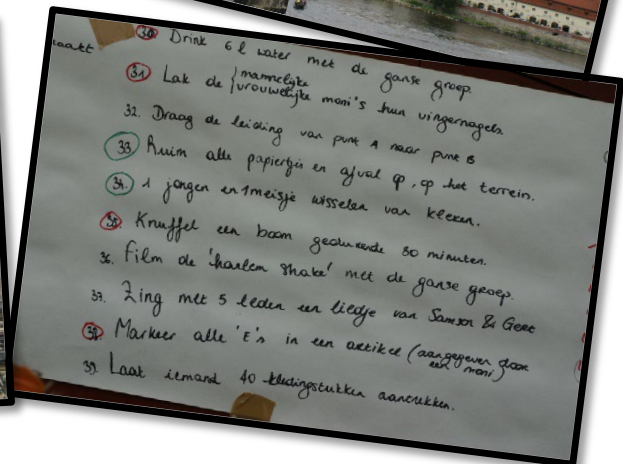 30. Drink 6 l water met de ganse groep.
aakt
31. Lak de { mannelijke
vrouwelijke moni's hun vingernagels.
32. Draag de leiding van punt A naar punt B
33. Ruim alle papiertjes en afval op, op het terrein.
34. 1 jongen en 1 meisje wisselen van kleren.
35. Knuffel een boom gedurende 30 minuten.
36. Film de 'harlem shake' met de ganse groep.
37. Zing met 5 leden een liedje van Samson & Gert
38. Markeer alle 'E's in een artikel (aangegeven door
een moni)
39. Laat iemand 40 kledingstukken aantrekken.